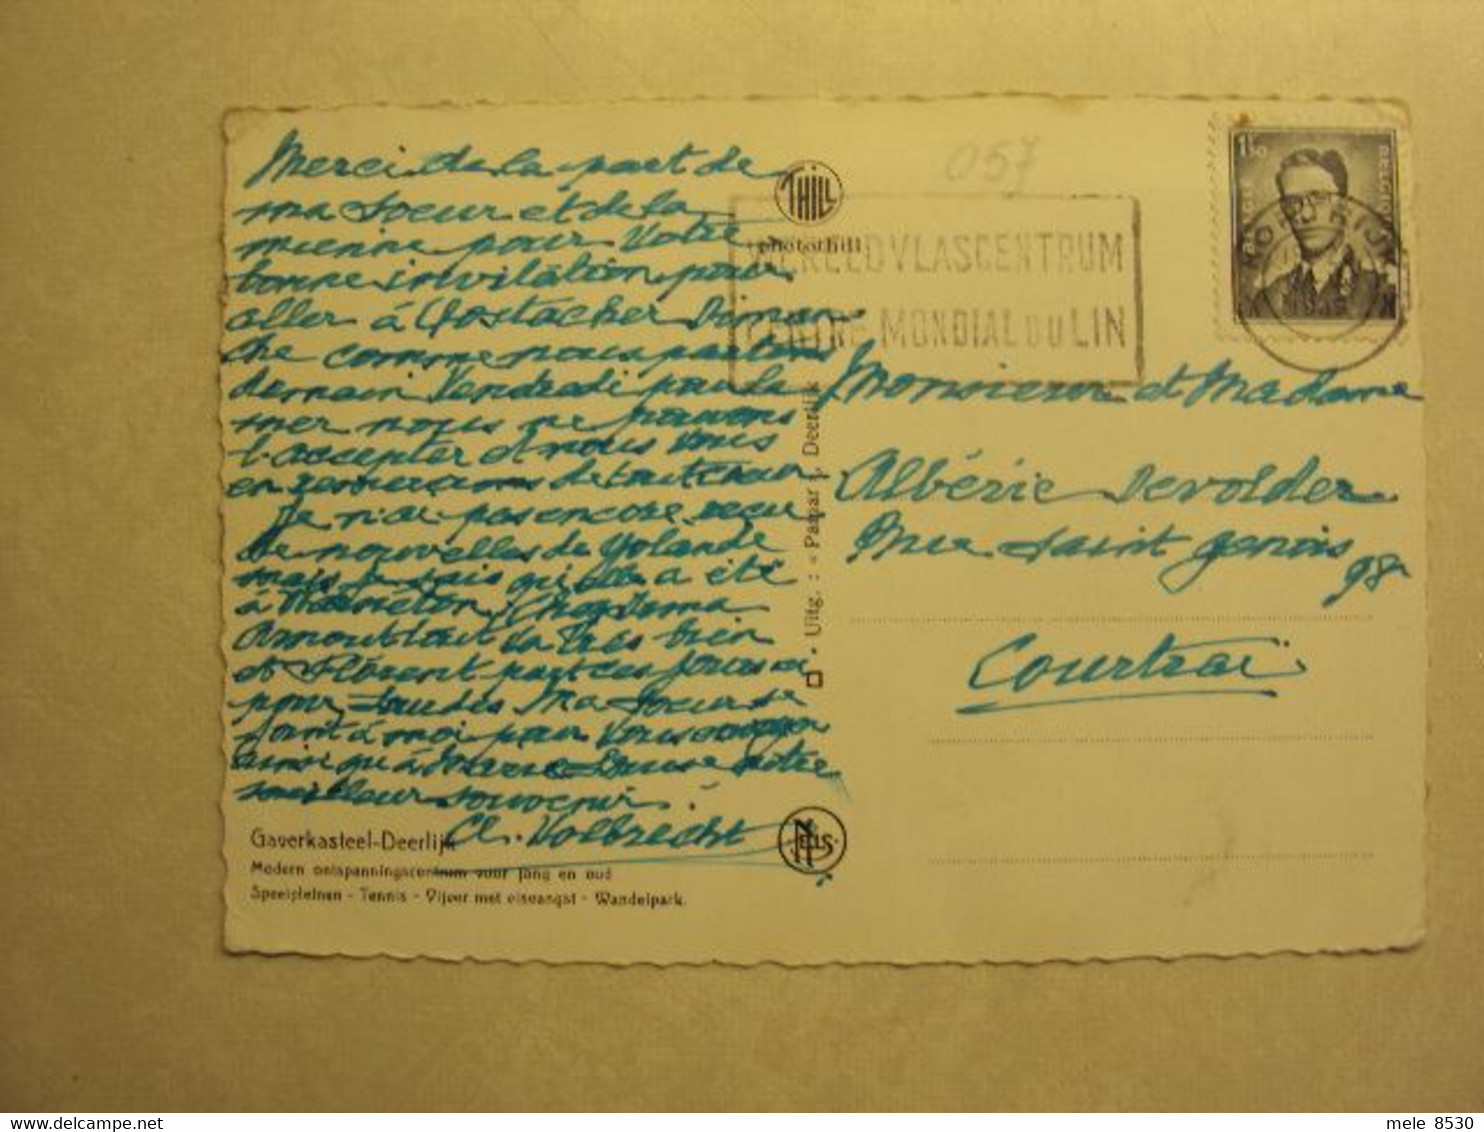 Merci de la part de
ma soeur et de la
mienne pour Votre
bonne invitation pour
aller à Oostacker Diman
che comme nous partons
demain Vendredi pour la
mer nous ne pouvons
l'accepter et nous vous
en remercions de tout coeur
Je n'ai pas encore reçu
de nouvelles de Yolande
mais je sais qu'elle a été
à
va très bien
et Florent part ces jours ci
pour Lourdes Ma soeur se
joint à moi pour Vous envoyer
ainsi qu'à Marie Louise notre
meilleur souvenir.
Cl. Volbrecht
Gaverkasteel-Deerlijk
Modern ontspanningscentrum voor jong en oud
Speelpleinen - Tennis - Vijver met eiseangst - Wandelpark.
THILL
photothill
Uitg. : « Papar », Deerlijk
NELS
057
WERELDVLASCENTRUM
CENTRE MONDIAL DU LIN
1F50
BELGIQUE
BELGIE
KORTRIJK
Monsieur et Madame
Albéric Devolder
Rue Saint Genois
98
Courtrai
mele 8530